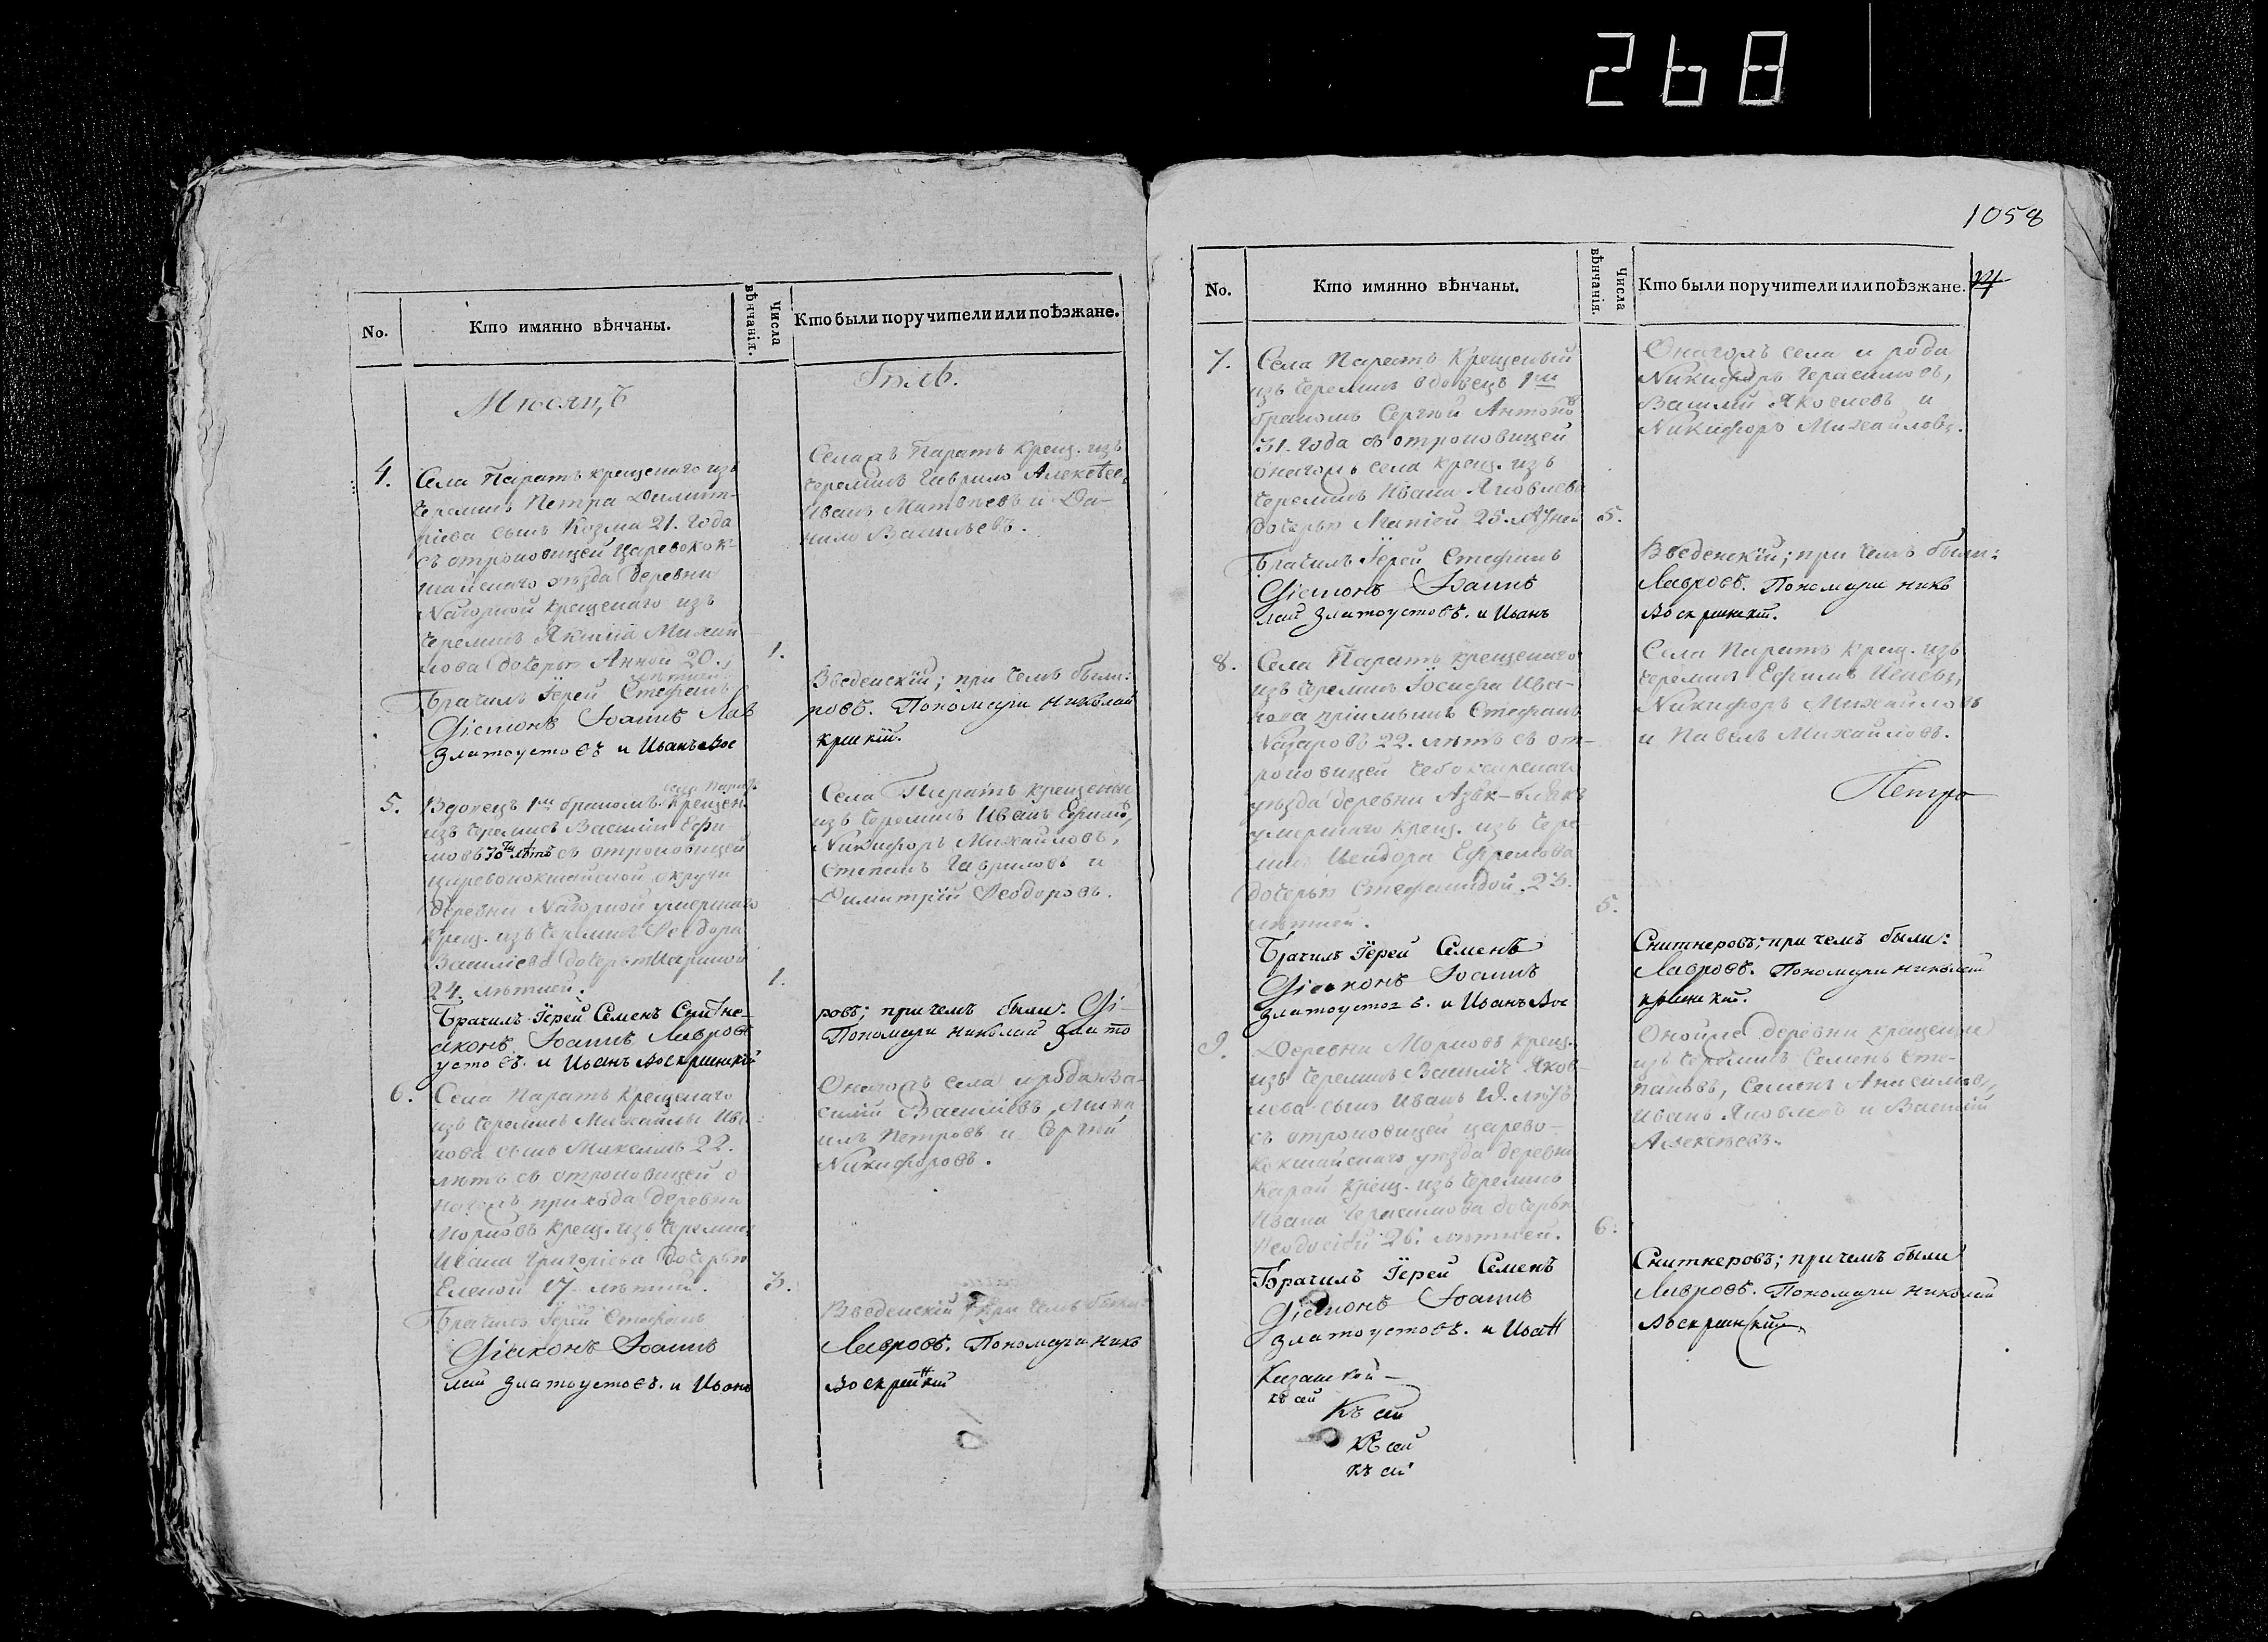 268
1058
No.
Кто имянно вѣнчаны.
Числа вѣнчанія.
Кто были поручители или поѣзжане.
Мѣсяцъ
Іюль.
4.
Села Паратъ крещенаго изъ
черемисъ Петра Димит-
ріева сынъ Козма 21. года
съ отроковицей Царевокок-
шайскаго уѣзда деревни
Нагорной крещенаго изъ
черемисъ Якима Михаи
лова дочерью Анной 20.
лѣтней.
1.
Брачилъ Іерей Стефанъ
Діаконъ Іоаннъ Лав
Златоустовъ и Иванъ Вос
Села Паратъ крещ. изъ
черемисъ Гаврило Алексѣев,
Иванъ Матвѣевъ и Да-
нило Васильевъ.
Введенскій; при чемъ были:
ровъ. Пономари Николай
крѣнскій.
5.
села Паратъ
Вдовецъ 1мъ бракомъ крещен.
изъ черемисъ Василій Ефи
мовъ 30ти лѣтъ съ отроковицей
Царевококшайской округи
деревни Нагорной умершаго
крещ. изъ черемисъ Ѳеодора
Васильева дочерью Мариной
24. лѣтней.
1.
Брачилъ Іерей Семенъ Снитке-
аконъ Іоаннъ Лавровъ
устовъ. и Иванъ Воскрѣнскій
Села Паратъ крещены
изъ черемисъ Иванъ Ефимовъ,
Никифоръ Михайловъ,
Степанъ Гавриловъ и
Димитрій Ѳеодоровъ.
ровъ; при чемъ были: Ді-
Пономари Николай Злато
6.
Села Паратъ крещенаго
изъ черемисъ Михайлы Ива
нова сынъ Максимъ 22.
лѣтъ съ отроковицей о
нагожъ прихода деревни
Норковъ крещ. изъ черемисъ
Ивана Григорьева дочерью
Еленой 17 лѣтней.
3.
Брачилъ Іерей Стефанъ
Діаконъ Іоаннъ
лай Златоустовъ. и Иванъ
Онагожъ села и рода Ва-
силій Васильевъ, Миха
илъ Петровъ и Сергѣй
Никифоровъ.
Введенскій при чемъ были:
Лавровъ. Пономари Нико
Воскрѣнскій
No.
Кто имянно вѣнчаны.
Числа вѣнчанія.
Кто были поручители или поѣзжане.
7.
Села Паратъ крещеный
изъ черемисъ вдовецъ 1мъ
бракомъ Сергѣй Антоновъ
31. года съ отроковицей
онагожъ села крещ. изъ
черемисъ Ивана Яковлева
дочерью 25. лѣтней
5.
Брачилъ Іерей Стефанъ
Діаконъ Іоаннъ
лай Златоустовъ. и Иванъ
Онагожъ села и рода
Никифоръ Герасимовъ,
Василій Яковлевъ и
Никифоръ Михайловъ.
Введенскій; при чемъ были:
Лавровъ. Пономари Нико
Воскрѣнскій.
8.
Села Паратъ крещенаго
изъ черемисъ Іосифа Ива-
нова пріимышъ Стефанъ
Назаровъ 22. лѣтъ съ от-
роковицей Чебоксарскаго
уѣзда деревни
умершаго крещ. изъ чере
мисъ Исидора Ефремова
дочерью Стефанидой 23.
лѣтней.
5.
Брачилъ Іерей Семенъ
Діаконъ Іоаннъ
Златоустовъ. и Иванъ Вос
Села Паратъ крещ. изъ
черемисъ Ефимъ
Никифоръ Михайловъ
и Павелъ Михайловъ.
Петро
Сниткеровъ; при чемъ были:
Лавровъ. Пономари Николай
крѣнскій.
9.
Деревни Норковъ крещ.
изъ черемисъ Василія Яков-
лева сынъ Иванъ 18. лѣтъ
съ отроковицей Царево-
кокшайскаго уѣзда деревни
Карай крещ. изъ черемисъ
Ивана Герасимова дочерью
Ѳеодосіей 26. лѣтней.
6.
Брачилъ Іерей Семенъ
Діаконъ Іоаннъ
Златоустовъ. и Иван
Онойже деревни крещены
изъ черемисъ Семенъ Сте-
пановъ, Семенъ Анисимовъ,
Иванъ Яковлевъ и Василій
Алексѣевъ.
Сниткеровъ; при чемъ были
Лавровъ. Пономари Николай
Воскрѣнскій
Казанкой
Къ сей
Къ сей
Къ сей
Къ сей